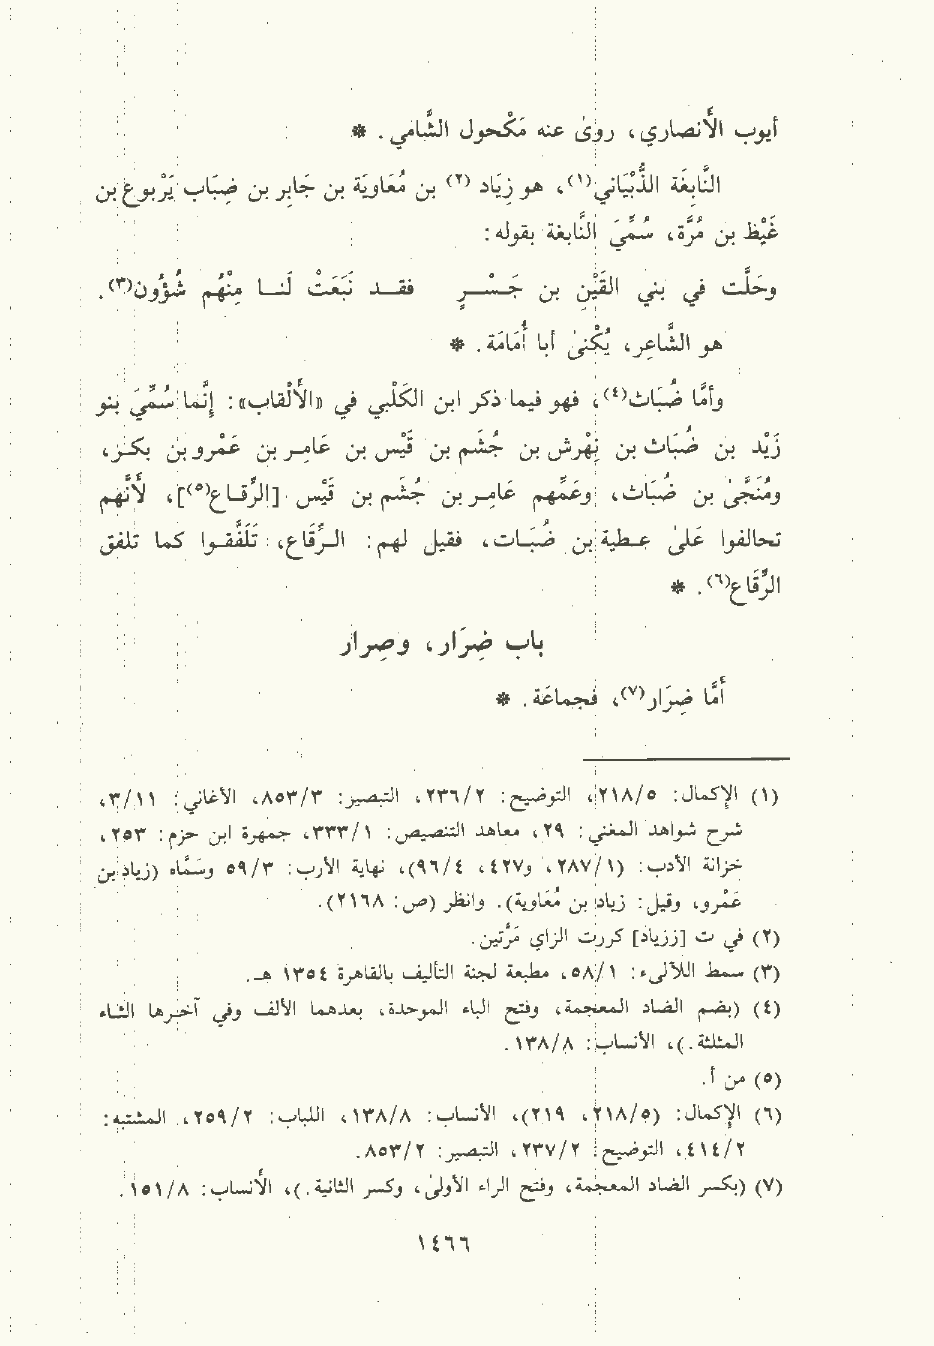 أيوب الأَنصاري، روىٰ عنه مَكْحول الشَّامي. *
النَّابِغَة الذُّبْيَاني(١)، هو زِيَاد (٢) بن مُعَاويَة بن جَابِر بن ضِبَاب يَرْبوع بن
غَيْظ بن مُرَّة، سُمِّيَ النَّابغة بقوله:
وحَلَّت في بني القَيْنِ بن جَـسْـرٍ فقــد نَبَغَتْ لَنـا مِنْهُم شُؤُون(٣).
هو الشَّاعِر، يُكْنىٰ أبا أُمَامَة. *
وأمَّا ضُبَاث(٤)، فهو فيما ذكر ابن الكَلْبي في «الأَلْقاب»: إنَّما سُمِّيَ بنو
زَيْد بن ضُبَاث بن نِهْرش بن جُشَم بن قَيْس بن عَامِـر بن عَمْرو بن بكـر،
ومُنَجَّىٰ بن ضُبَاث، وعَمِّهم عَامِـر بن جُشَم بن قَيْس [الرِّقـاع(٥)]، لأَنَّهم
تحالفوا عَلىٰ عـطية بن ضُبَـاث، فقيل لهم: الـرِّقَاع، تَلَفَّقـوا كما تلفق
الرِّقَاع(٦). *
باب ضِرَار، وصِرار
أَمَّا ضِرَار(٧)، فجماعَة. *
(١) الإكمال: ٢١٨/٥، التوضيح: ٢٣٦/٢، التبصير: ٨٥٣/٣، الأغاني: ٣/١١،
شرح شواهد المغني: ٢٩، معاهد التنصيص: ٣٣٣/١، جمهرة ابن حزم: ٢٥٣،
خزانة الأدب: (٢٨٧/١، و٤٢٧، ٩٦/٤)، نهاية الأرب: ٥٩/٣ وسَمَّاه (زياد بن
عَمْرو، وقيل: زياد بن مُعَاوية). وانظر (ص: ٢١٦٨).
(٢) في ت [ززياد] كررت الزاي مَرَّتين.
(٣) سمط اللآلىء: ٥٨/١، مطبعة لجنة التأليف بالقاهرة ١٣٥٤ هـ.
(٤) (بضم الضاد المعجمة، وفتح الباء الموحدة، بعدهما الألف وفي آخرها الثاء
المثلثة.)، الأنساب: ١٣٨/٨.
(٥) من أ.
(٦) الإكمال: (٢١٨/٥، ٢١٩)، الأنساب: ١٣٨/٨، اللباب: ٢٥٩/٢، المشتبه:
٤١٤/٢، التوضيح: ٢٣٧/٢، التبصير: ٨٥٣/٢.
(٧) (بكسر الضاد المعجمة، وفتح الراء الأولىٰ، وكسر الثانية.)، الأنساب: ١٥١/٨.
١٤٦٦